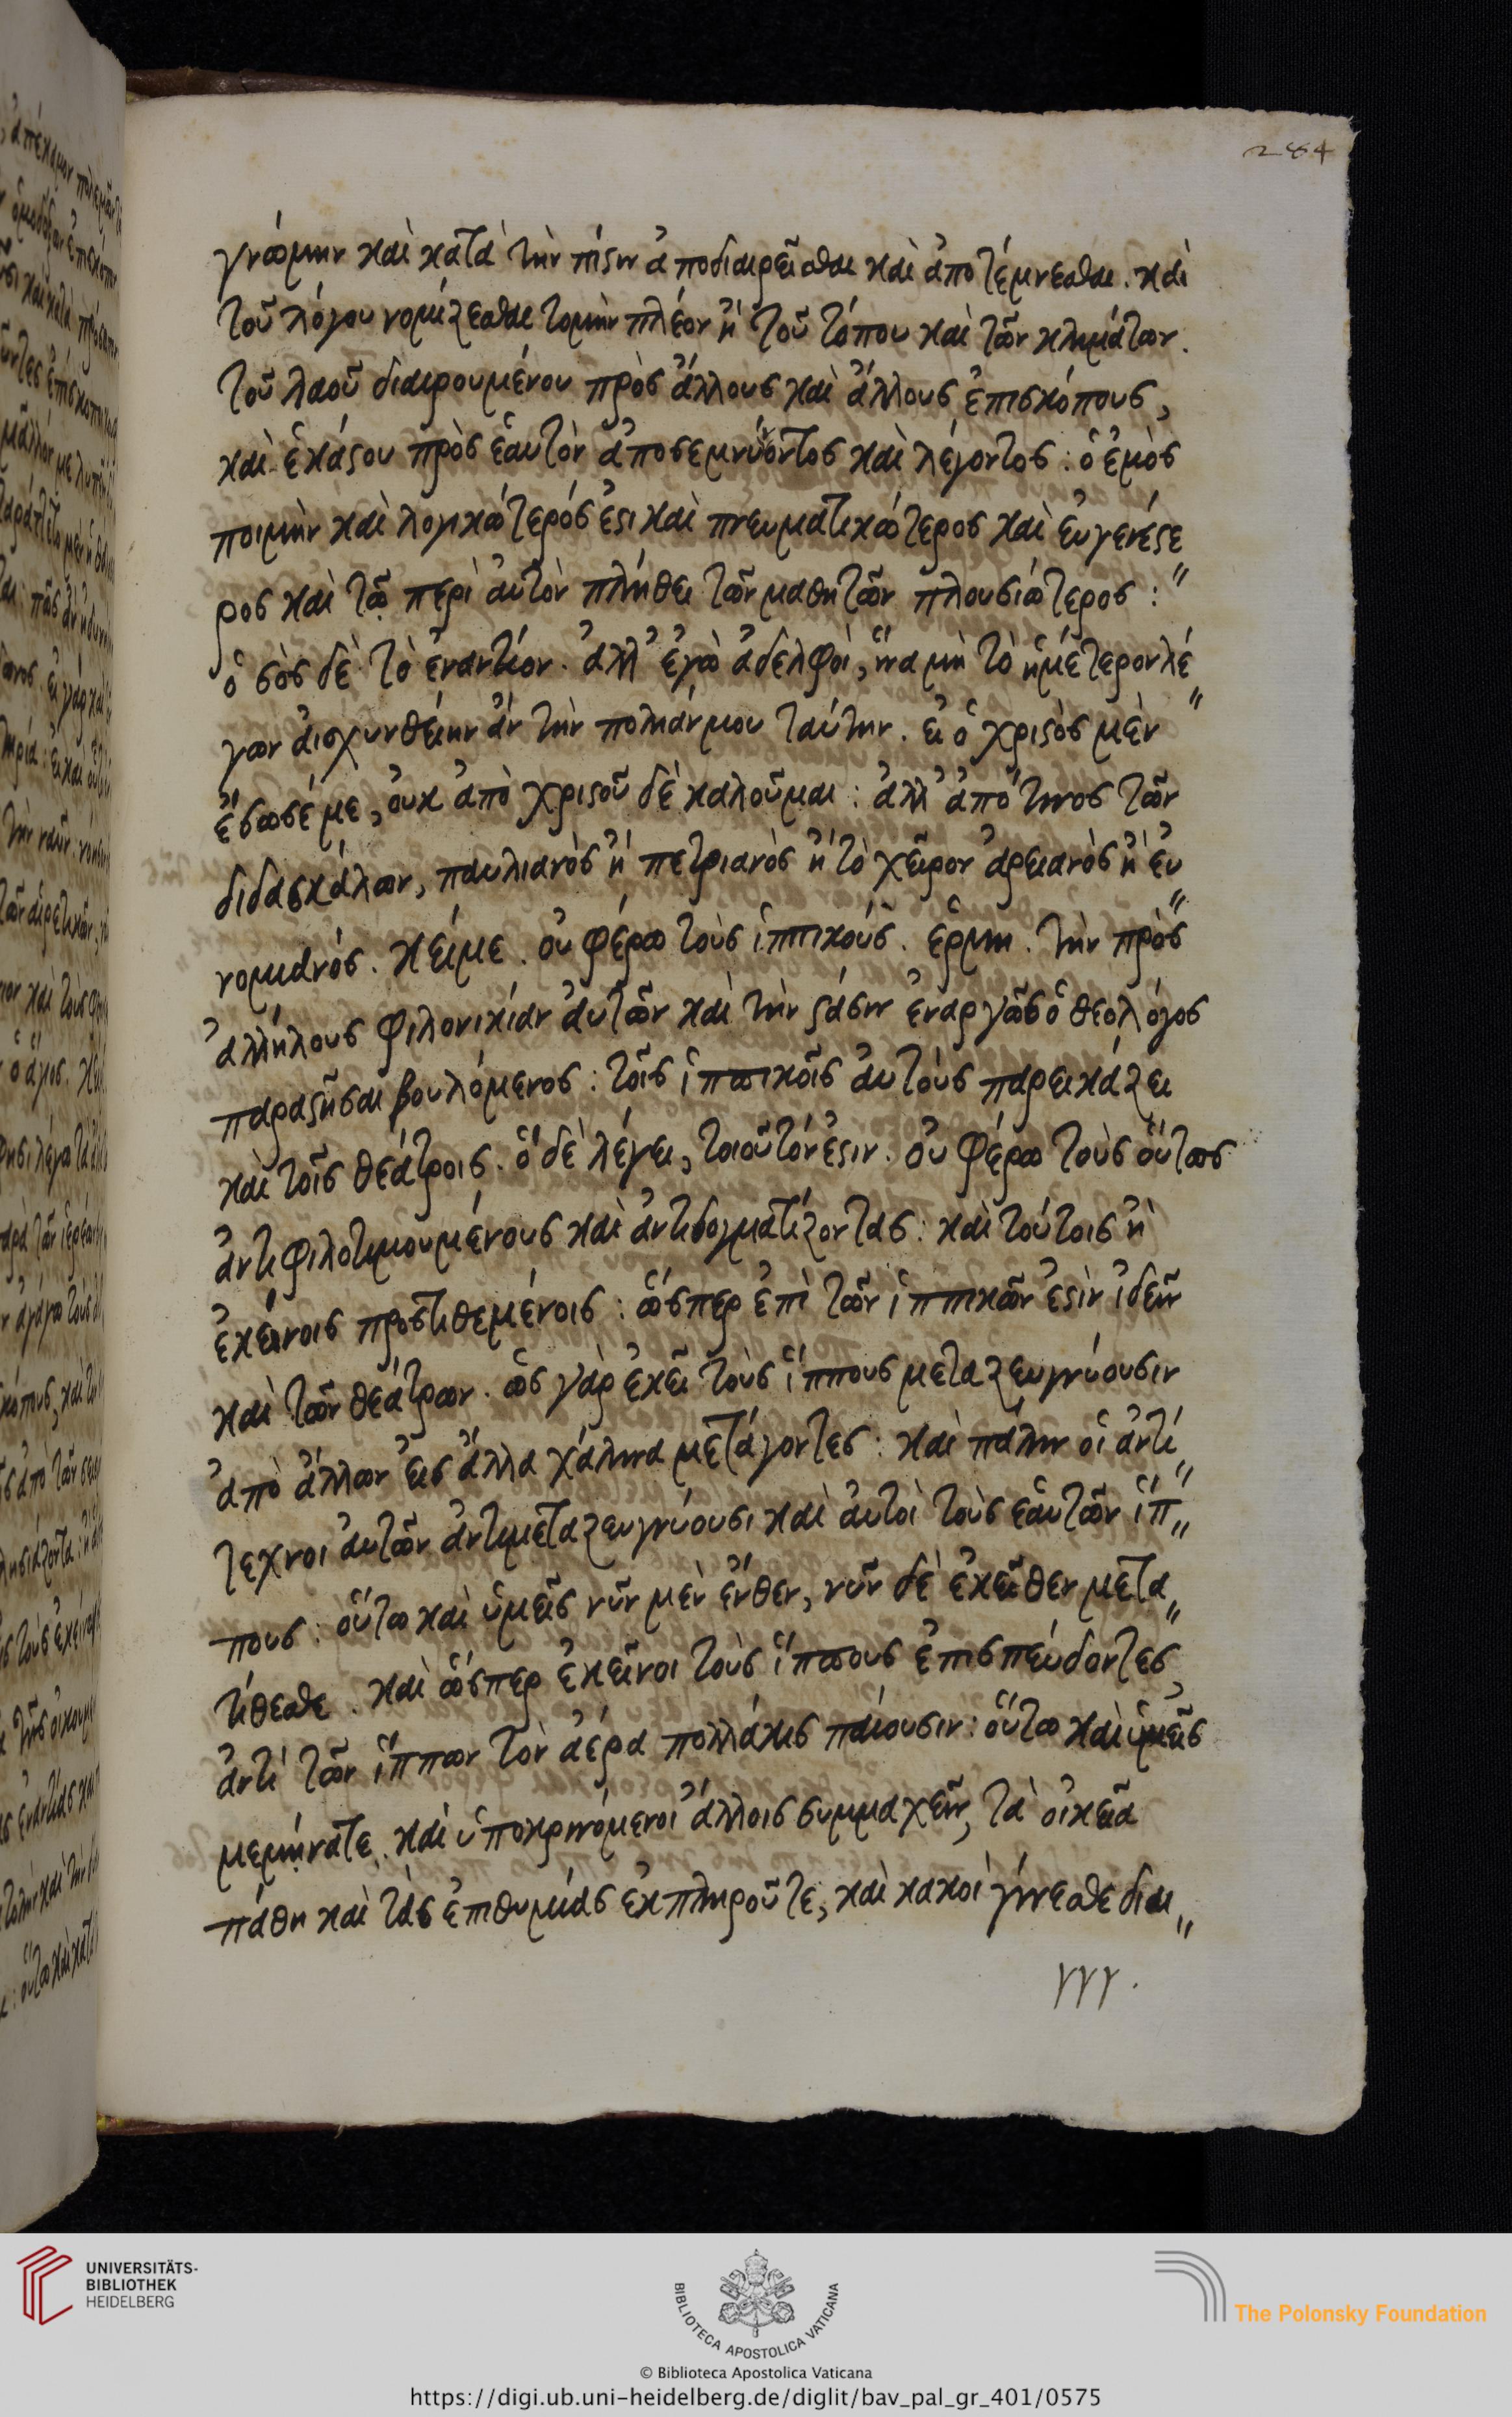 284
γνώμην καὶ κατὰ τὴν πίστιν ἀποδιαιρεῖσθαι καὶ ἀποτέμνεσθαι. καὶ
τοῦ λόγου νομίζεσθαι τομὴν πλέον ἢ τοῦ τόπου καὶ τῶν κλημάτων.
τοῦ λαοῦ διαιρουμένου πρὸς ἄλλους καὶ ἄλλους ἐπισκόπους,
καὶ ἑκάστου πρὸς ἑαυτὸν ἀποσεμνύοντος καὶ λέγοντος: ὁ ἐμὸς
ποιμὴν καὶ λογικώτερός ἐστι καὶ πνευματικώτερος καὶ εὐγενέστε
ρος καὶ τῷ περὶ αὐτὸν πλήθει τῶν μαθητῶν πλουσιώτερος:
ὁ σὸς δὲ τὸ ἐναντίον. ἀλλ' ἐγὼ ἀδελφοὶ, ἵνα μὴ τὸ ἡμέτερον λέ
γων αἰσχυνθείην ἂν τὴν πολιάν μου ταύτην. εἰ ὁ χριστὸς μὲν
ἔσωσέ με, οὐκ ἀπὸ χριστοῦ δὲ καλοῦμαι: ἀλλ' ἀπό τινος τῶν
διδασκάλων, παυλιανὸς ἢ πετριανὸς ἢ τὸ χεῖρον ἀρειανὸς ἢ εὐ
νομιανός. κείμε. οὐ φέρω τοὺς ἱππικούς. ἑρμη. τὴν πρὸς
ἀλλήλους φιλονικίαν αὐτῶν καὶ τὴν στάσιν ἐναργῶς ὁ θεολόγος
παραστῆσαι βουλόμενος: τοῖς ἱππικοῖς αὐτοὺς παρεικάζει
καὶ τοῖς θεάτροις. ὃ δὲ λέγει, τοιοῦτόν ἐστιν. οὐ φέρω τοὺς οὕτως
ἀντιφιλοτιμουμένους καὶ ἀντιδογματίζοντας: καὶ τούτοις ἢ
ἐκείνοις προστιθεμένοις: ὥσπερ ἐπὶ τῶν ἱππικῶν ἐστὶν ἰδεῖν
καὶ τῶν θεάτρων. ὡς γὰρ ἐκεῖ τοὺς ἵππους μεταζευγνύουσιν
ἀπὸ ἄλλων εἰς ἄλλα χάλινα μετάγοντες: καὶ πάλιν οἱ ἀντί
τεχνοι αὐτῶν ἀντιμεταζευγνύουσι καὶ αὐτοὶ τοὺς ἑαυτῶν ἵπ
πους: οὕτω καὶ ὑμεῖς νῦν μὲν ἔνθεν, νῦν δὲ ἐκεῖθεν μετα
τίθεσθε. καὶ ὥσπερ ἐκεῖνοι τοὺς ἵππους ἐπισπεύδοντες
ἀντὶ τῶν ἵππων τὸν ἀέρα πολλάκις παίουσιν: οὕτω καὶ ὑμεῖς
μεμήνατε. καὶ ὑποκρινόμενοι ἄλλοις συμμαχεῖν, τὰ οἰκεῖα
πάθη καὶ τὰς ἐπιθυμίας ἐκπληροῦτε, καὶ κακοὶ γίνεσθε διαι
γγγ.
UNIVERSITÄTS-
BIBLIOTHEK
HEIDELBERG
BIBLIOTECA APOSTOLICA VATICANA
© Biblioteca Apostolica Vaticana
The Polonsky Foundation
https://digi.ub.uni-heidelberg.de/diglit/bav_pal_gr_401/0575